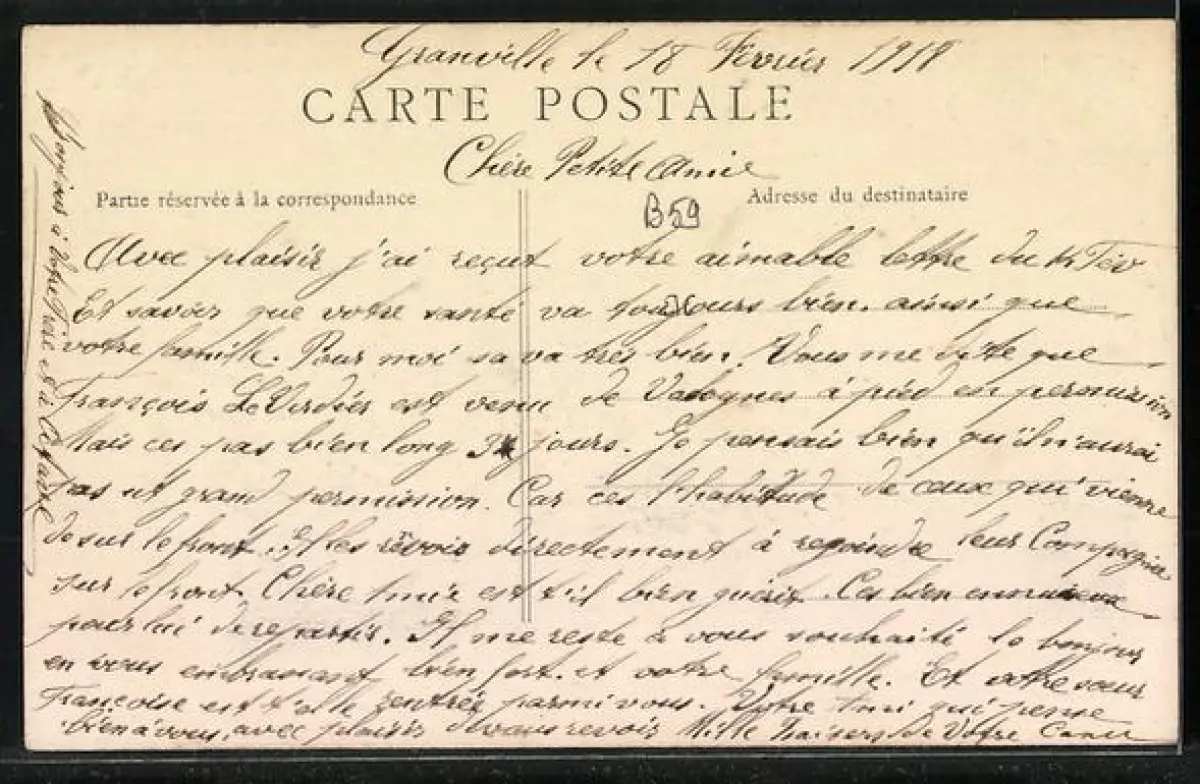 Granville le 18 Février 1918
CARTE POSTALE
Chère Petite amie
Partie réservée à la correspondance
Adresse du destinataire
B59
Avec plaisir j'ai reçut votre aimable lettre du 14 Fév
Et savoir que votre santé va toujours bien. ainsi que
votre famille. Pour moi sa va très bien. Vous me dite que
François LeVerdier est venu de Valognes à pied en permission
Mais ces pas bien long 3 jours. Je pensais bien qu'il n'aurai
pas ut grand permission. Car ces l'habitude de ceux qui vienne
de sur le front. Il les revois directement à rejoindre leur Compagnie
sur le front. Chère Amie est t'il bien guérit. Ces bien ennuieux
pour lui de repartir. Il me reste à vous souhaité le bonjour
en vous embrassant bien fort. et votre famille. Et votre sœur
Françoise est t'elle rentrée parmi vous. Votre Ami qui pense
bien à vous, avec plaisir de vous revoir Mille Baisers de Votre
Bonjour à votre Frère et à